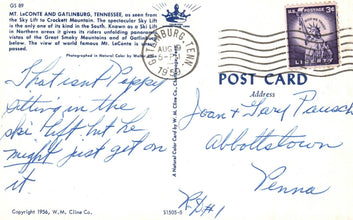 GS 89
MT. LeCONTE AND GATLINBURG, TENNESSEE, as seen from
the Sky Lift to Crockett Mountain. The spectacular Sky Lift
is the only one of its kind in the South. Known as a Ski Lift
in Northern areas it gives its riders unfolding panoramic
vistas of the Great Smoky Mountains and of Gatlinburg
below. The view of world famous Mt. LeConte is un-
passed.
Photographed in Natural Color by Walter
That isn't Peppy
sitting in the
ski lift but he
might just get on
it.
Copyright 1956, W. M. Cline Co.
A Natural Color Card by W. M. Cline
GATLINBURG, TENN.
AUG
5 - PM
1959
U.S. POSTAGE 3¢
LIBERTY
POST CARD
Address
Joan & Gary Pausch
Abbottstown
Penna
R.D. #1
S1505-5